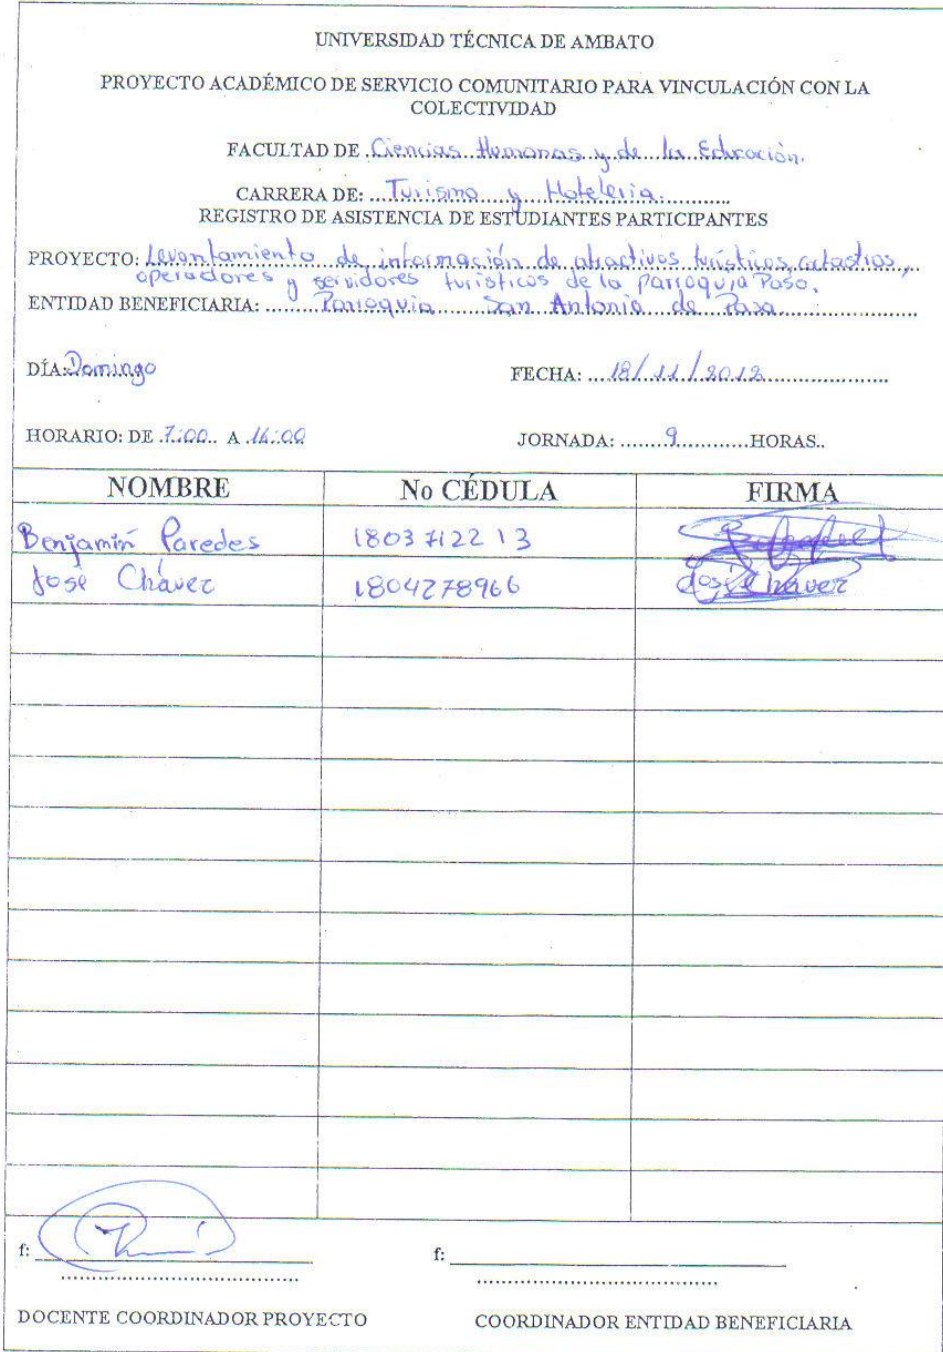 UNIVERSIDAD TÉCNICA DE AMBATO
PROYECTO ACADÉMICO DE SERVICIO COMUNITARIO PARA VINCULACIÓN CON LA
COLECTIVIDAD
FACULTAD DE Ciencias Humanas y de la Educación.
CARRERA DE: Turismo y Hoteleria.
REGISTRO DE ASISTENCIA DE ESTUDIANTES PARTICIPANTES
PROYECTO: Levantamiento de información de atractivos turísticos, catastros,
operadores y servidores turísticos de la parroquia Pasa.
ENTIDAD BENEFICIARIA: Parroquia San Antonio de Pasa
DÍA: Domingo FECHA: 18/11/2012
HORARIO: DE 7:00 A 16:00 JORNADA: 9 HORAS..
NOMBRE No CÉDULA FIRMA
Benjamín Paredes 1803712213
José Chávez 1804278966 José Chávez
f: f:
DOCENTE COORDINADOR PROYECTO COORDINADOR ENTIDAD BENEFICIARIA